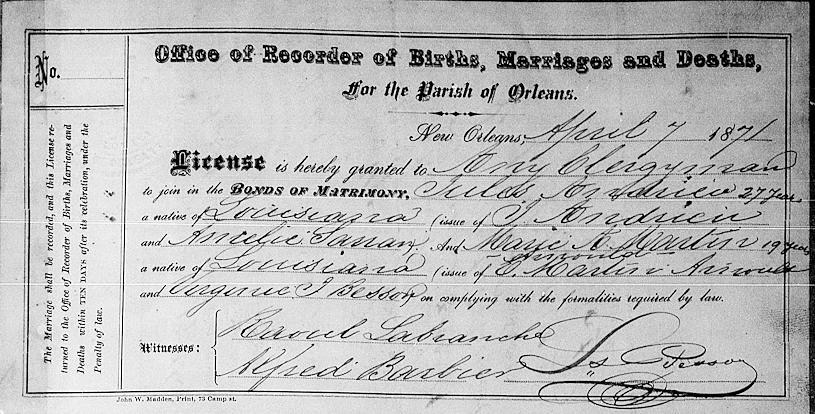 No.
The Marriage shall be recorded, and this License re-
turned to the Office of Recorder of Births, Marriages and
Deaths within TEN DAYS after its celebration, under the
Penalty of law.
Office of Recorder of Births, Marriages and Deaths,
For the Parish of Orleans.
New Orleans, April 7 1871
License is hereby granted to Any Clergyman
to join in the BONDS OF MATRIMONY, Jules Andrieu 27 years
a native of Louisiana (issue of J. Andrieu
and Amelie And Marie A. Martin 19 years
Arnoult
a native of Louisiana (issue of E. Martin Arnoult
and Virginie J Besson on complying with the formalities required by law.
Witnesses:
Raoul Labranche
Alfred Barbier
Besson
John W. Madden, Print, 73 Camp st.